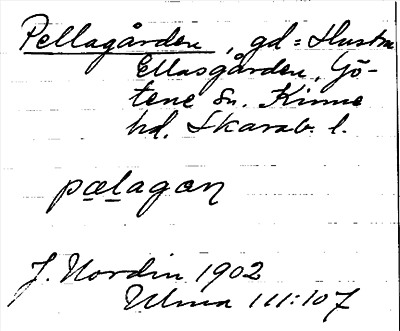 Pellagården, gd = Hustru
Ellasgården, Gö-
tene sn. Kinne
hd. Skarab. l.
pælagan
J. Nordin 1902
Ulma 111:107